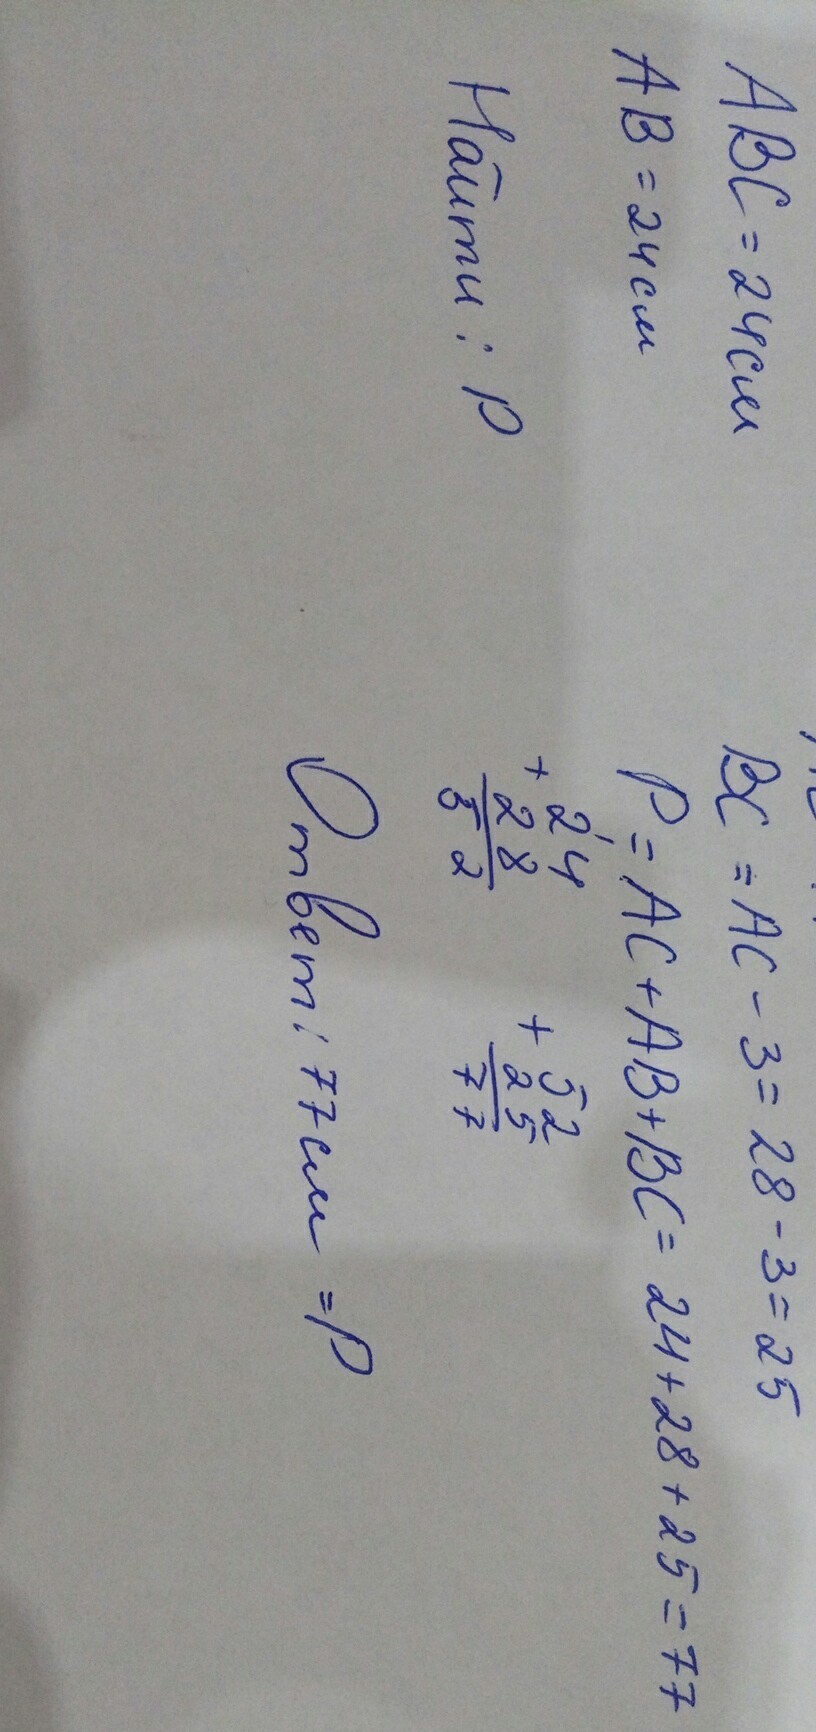 ABC = 24см
AB = 24см
Найти: P
BC = AC - 3 = 28 - 3 = 25
P = AC + AB + BC = 24 + 28 + 25 = 77
+ 24
28
52
+ 52
25
77
Ответ: 77см = P